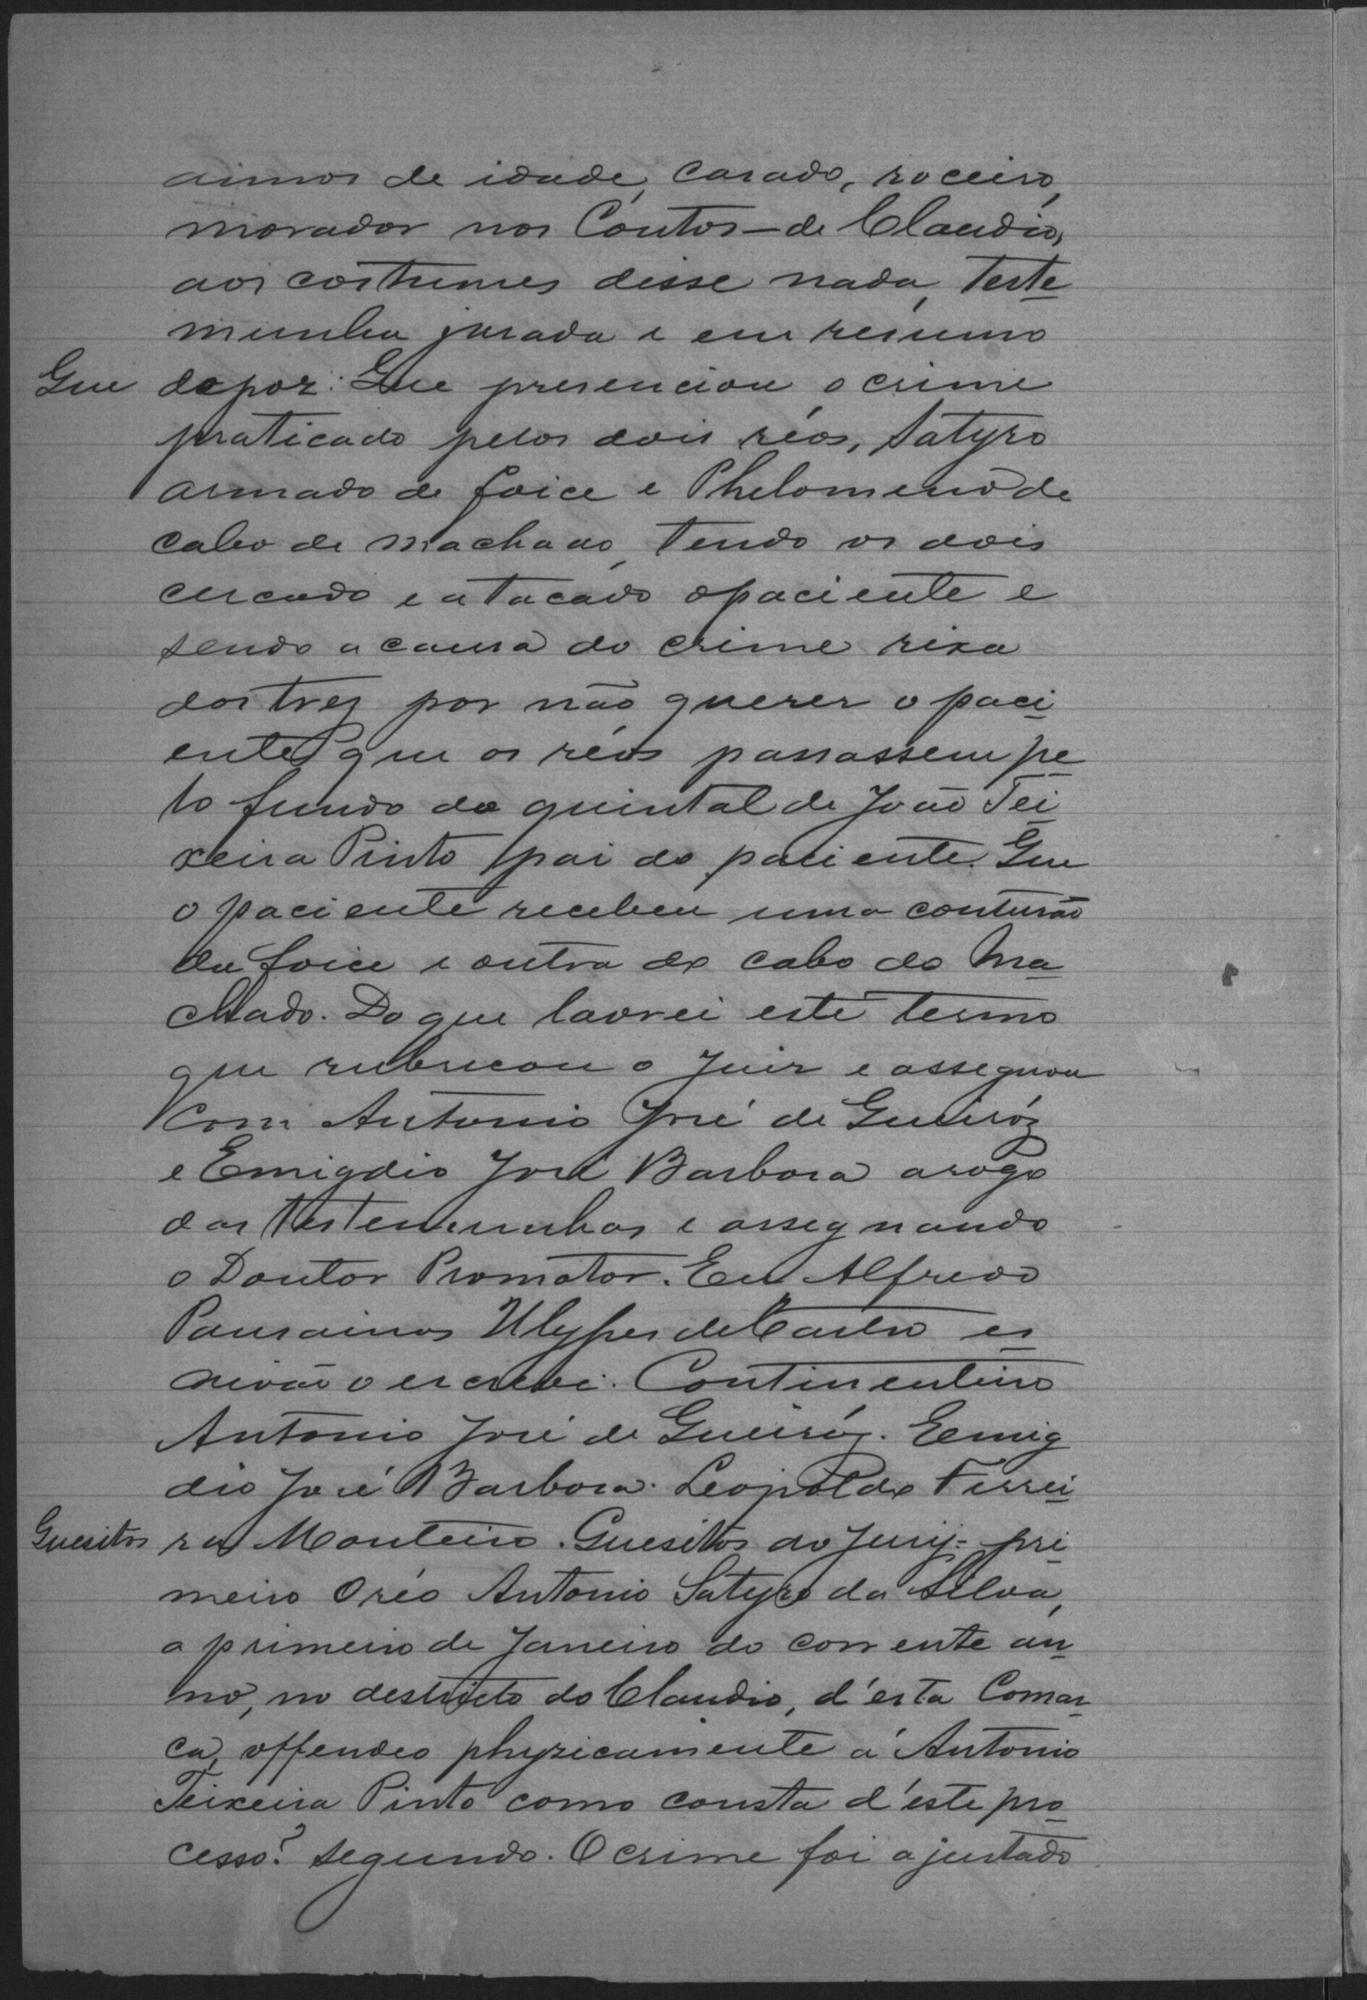 annos de idade, casado, roceiro,
morador nos Coutos - de Claudio,
aos costumes disse nada, teste
munha jurada e em resumo
Que depoz: Que presenciou o crime
praticado pelos dois réos, Satyro
armado de foice e Phelomeno de
cabo de machado, tendo os dois
cercado e atacado o paciente e
sendo a causa do crime rixa
dos trez por não querer o paci
ente que os réos passassem pe
lo fundo do quintal de João Tei
xeira Pinto pai do paciente. Que
o paciente recebeu uma contusão
da foice e outra do cabo do Ma
chado. Do que lavrei este termo
que rubricou o Juiz e assegnou
com Antonio José de Queiróz
e Emigdio José Barbosa arogo
das testemunhas e assegnando
o Doutor Promotor. Eu Alfredo
Pausainas Ulysses de Castro es
crivão o escrevi. Continentino
Antonio José de Queiróz. Emig
dio José Barbosa. Leopoldo Ferrei
Quesitos ra Monteiro. Quesitos do Jury = pri
meiro O réo Antonio Satyro da Silva,
a primeiro de Janeiro do corrente an
no, no destricto do Claudio, d'esta Comar
ca, offendeo physicamente á Antonio
Teixeira Pinto como consta d'este pro
cesso? segundo. O crime foi ajustado